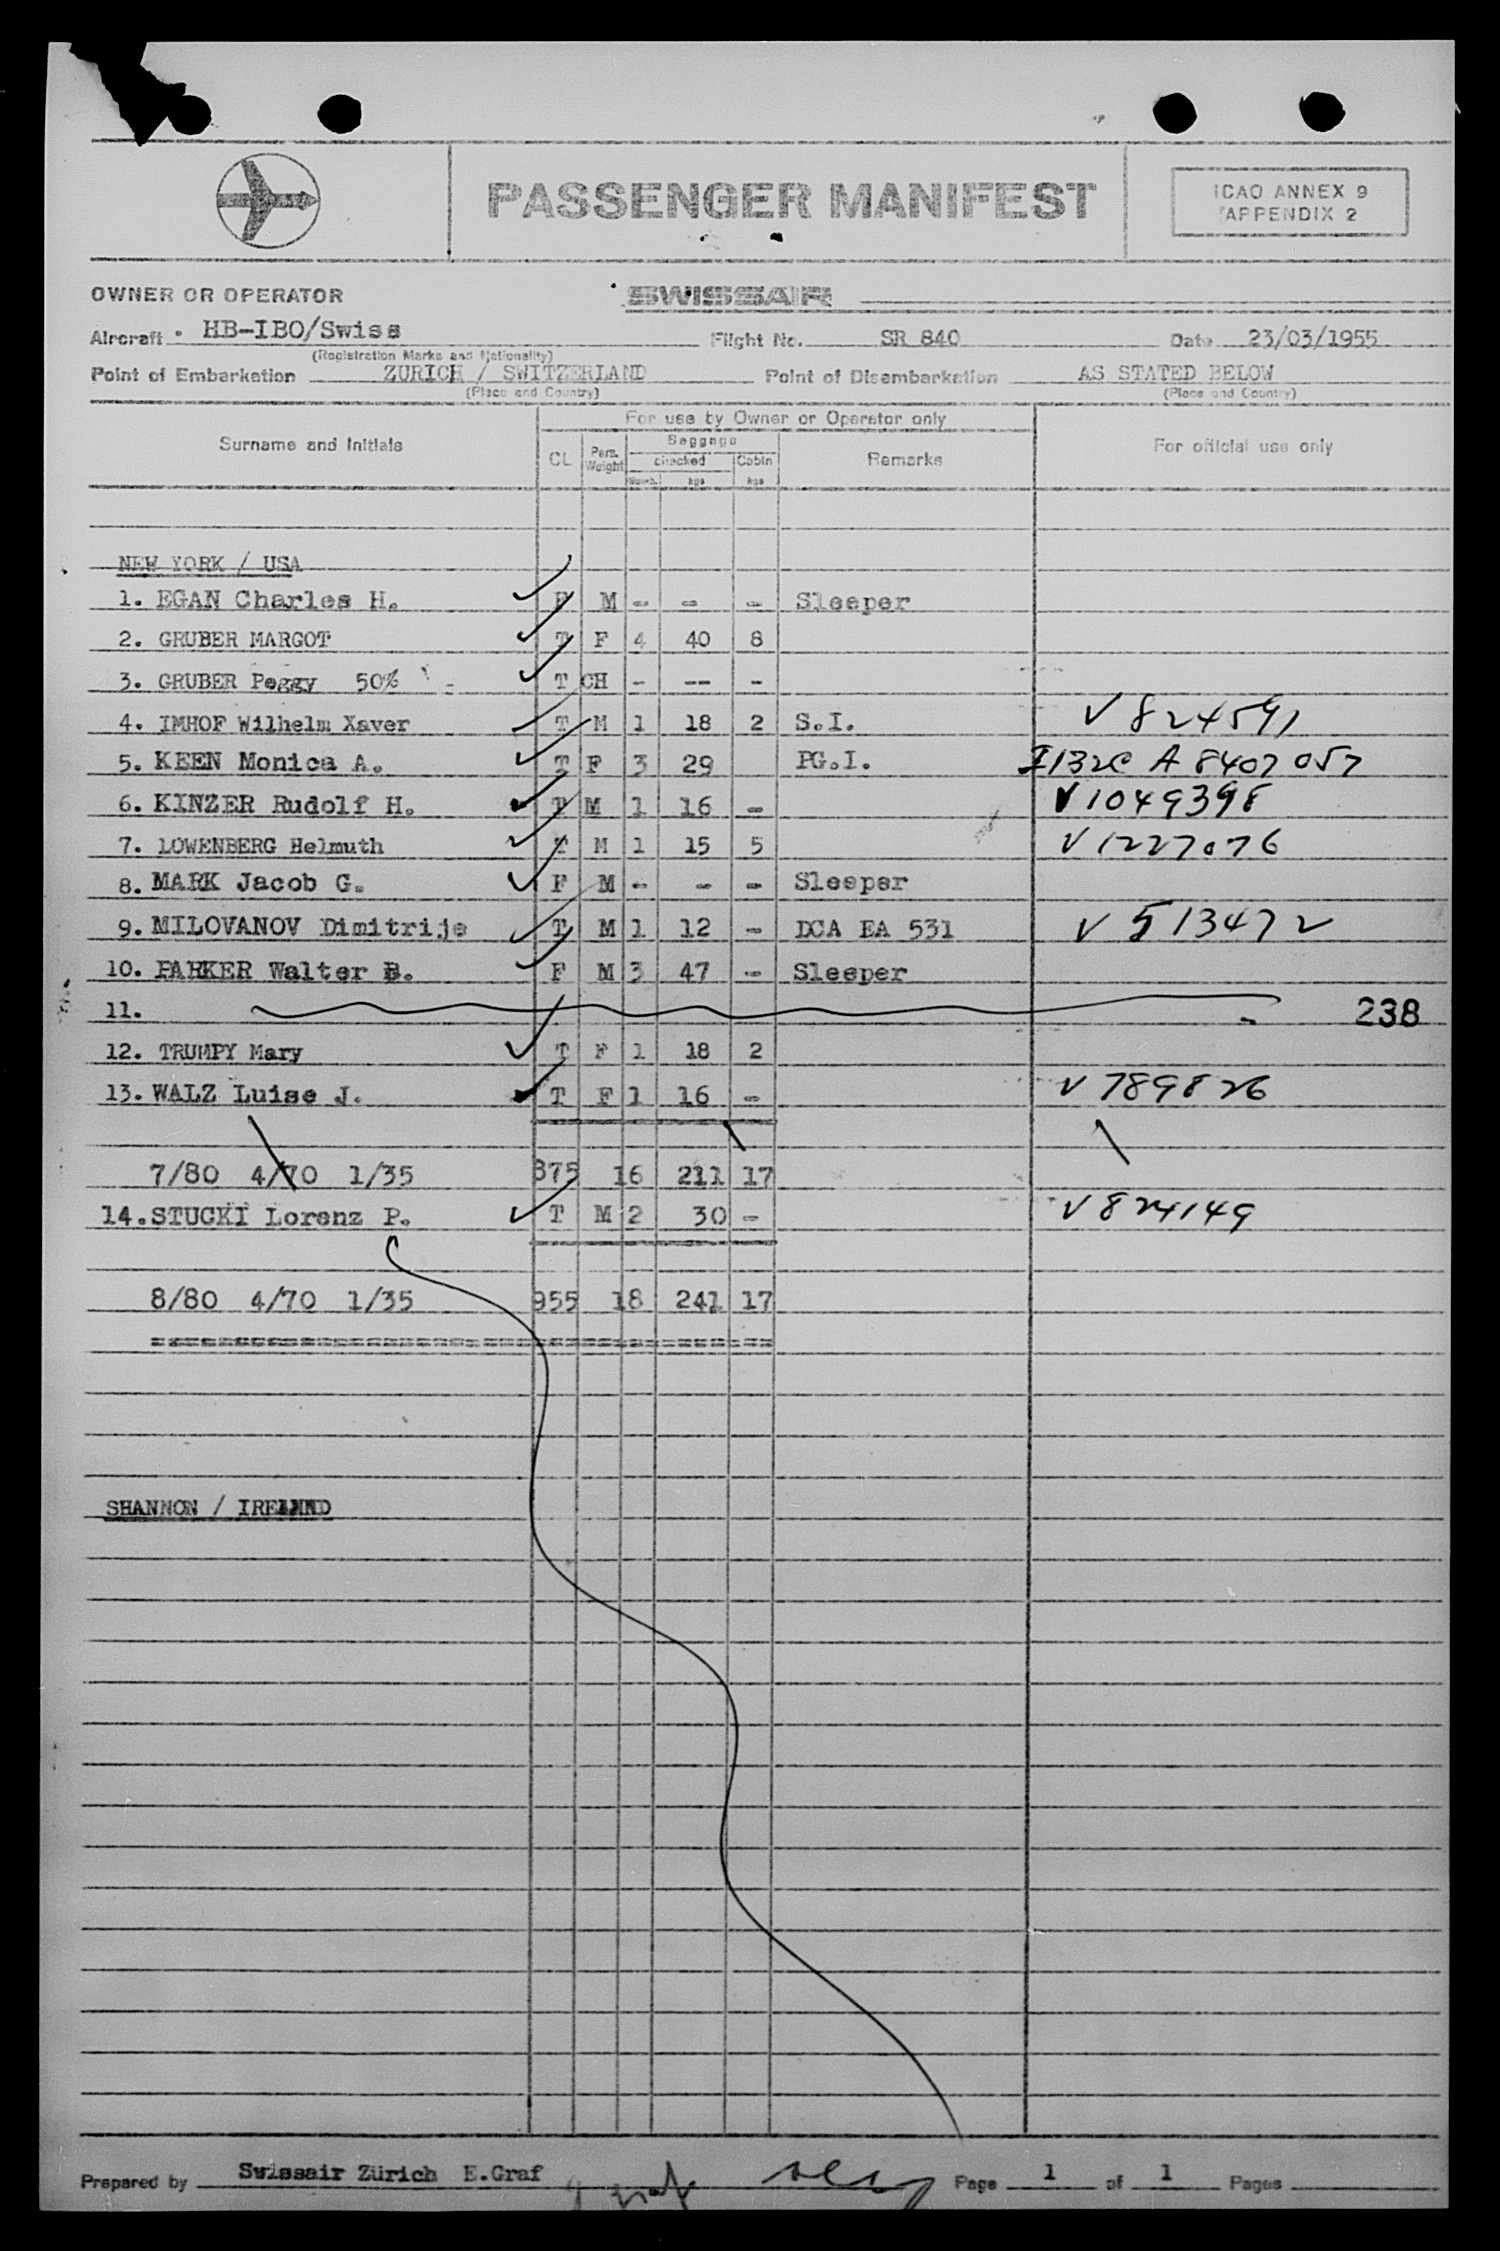 PASSENGER MANIFEST
ICAO ANNEX 9
APPENDIX 2
OWNER OR OPERATOR SWISSAIR
Aircraft HB-IBO/Swiss Flight No. SR 840 Date 23/03/1955
(Registration Marks and Nationality)
Point of Embarkation ZURICH / SWITZERLAND Point of Disembarkation AS STATED BELOW
(Place and Country) (Place and Country)
For use by Owner or Operator only
Surname and Initials CL Pers. Weight Baggage checked Numb. kgs Cabin kgs Remarks For official use only
NEW YORK / USA
1. EGAN Charles H. F M - - - Sleeper
2. GRUBER MARGOT T F 4 40 8
3. GRUBER Peggy 50% T CH - -- -
4. IMHOF Wilhelm Xaver T M 1 18 2 S.I. V 824591
5. KEEN Monica A. T F 3 29 PG.I. I132C A 8407057
6. KINZER Rudolf H. T M 1 16 - V1049398
7. LOWENBERG Helmuth T M 1 15 5 V1227076
8. MARK Jacob G. F M - - - Sleeper
9. MILOVANOV Dimitrije T M 1 12 - DCA EA 531 V 513472
10. PARKER Walter B. F M 3 47 - Sleeper
11. 238
12. TRUMPY Mary T F 1 18 2
13. WALZ Luise J. T F 1 16 - V 789826
7/80 4/70 1/35 875 16 211 17
14. STUCKI Lorenz P. T M 2 30 - V 824149
8/80 4/70 1/35 955 18 241 17
SHANNON / IRELAND
Prepared by Swissair Zürich E.Graf Page 1 of 1 Pages